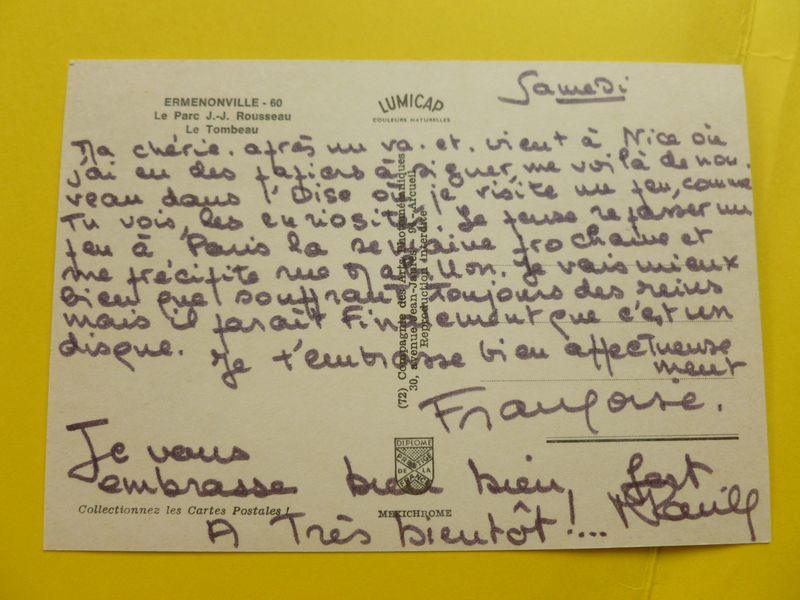 ERMENONVILLE - 60
Le Parc J.-J. Rousseau
Le Tombeau
LUMICAP
COULEURS NATURELLES
Samedi
Ma chérie. après un va. et. vient à Nice où
j'ai eu des papiers à signer, me voilà de nou.
veau dans l'Oise où je visite un peu, comme
Tu vois, les curiosités. Je pense repasser un
peu à Paris la semaine prochaine et
me précipite rue. Je vais mieux
bien que souffrant toujours des reins
mais il paraît finalement que c'est un
disque. Je t'embrasse bien affectueuse
ment
Françoise.
(72) Compagnie des Arts Photomécaniques
30, avenue Jean-Jaurès, 94-Arcueil
Reproduction interdite
Je vous
embrasse bien bien, fort
A Très bientôt!...
DIPLOME
PRESTIGE
DE LA
FRANCE
Collectionnez les Cartes Postales !
MEXICHROME